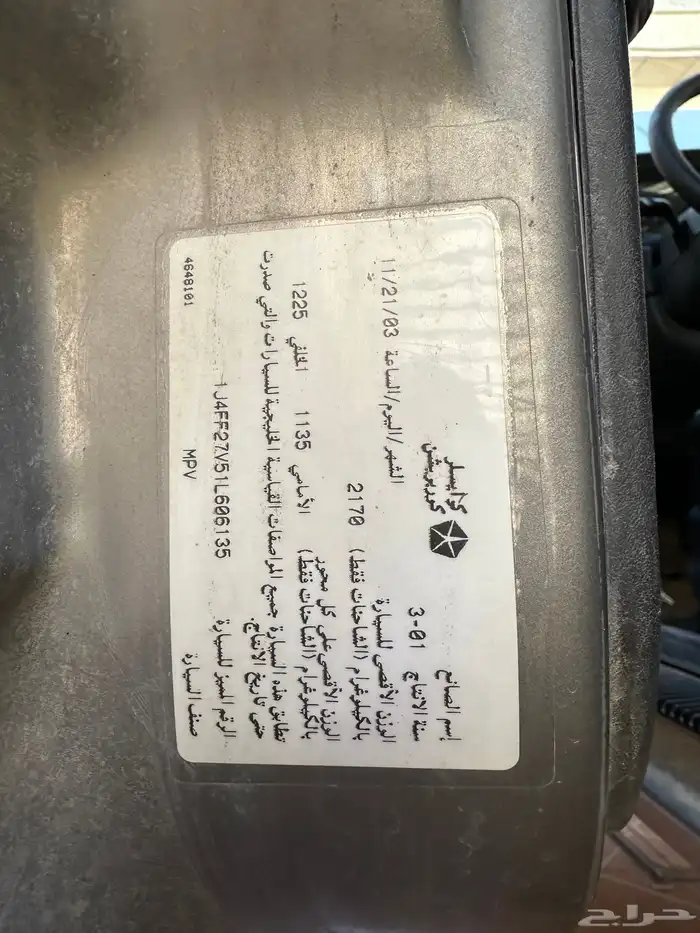 إسم الصانع كرايسلر كوربريشن
سنة الانتاج 3-01
الشهر/اليوم/الساعة 11/21/03
الوزن الأقصى للسيارة
بالكيلوغرام (الشاحنات فقط) 2170
الوزن الأقصى على كل محور
بالكيلوغرام (الشاحنات فقط) الأمامي 1135 الخلفي 1225
تطابق هذه السيارة جميع المواصفات القياسية الخليجية للسيارات والتي صدرت
حتى تاريخ الانتاج
الرقم المميز للسيارة 1J4FF27V51L606135
صنف السيارة MPV
4648101
حراج